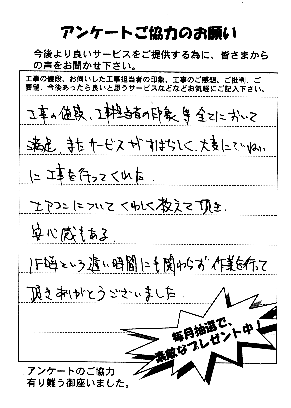 アンケートご協力のお願い
今後より良いサービスをご提供する為に、皆さまから
の声をお聞かせ下さい。
工事の値段、お伺いした工事担当者の印象、工事のご感想、ご批判、ご
要望、今後あったら良いと思うサービスなどなどお気軽にご記入下さい。
工事の値段、工事担当者の印象、等全てにおいて
満足。またサービスがすばらしく、大変にていねい
に工事を行ってくれた。
エアコンについてくわしく教えて頂き、
安心感もある。
という遅い時間にも関わらず作業を行って
頂きありがとうございました。
毎月抽選で、
素敵なプレゼント中!
アンケートのご協力
有り難う御座いました。